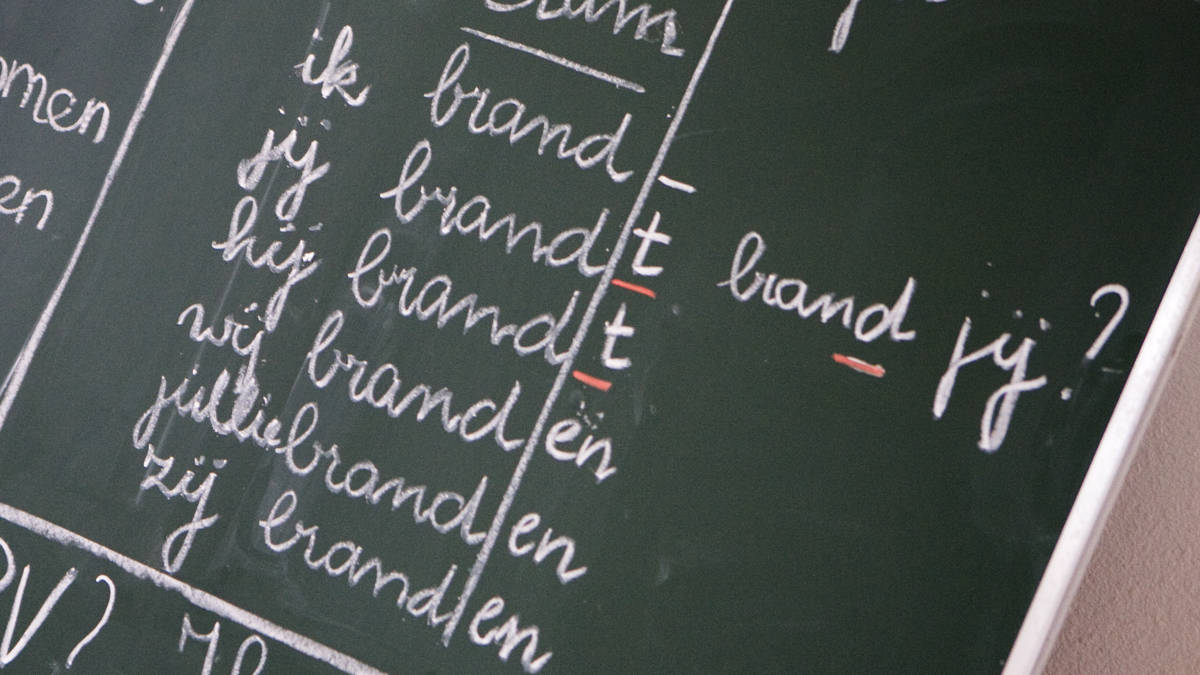 stam
ik brand -
jij brand t brand jij?
hij brand t
wij brand en
jullie brand en
zij brand en
omen
en
PV?